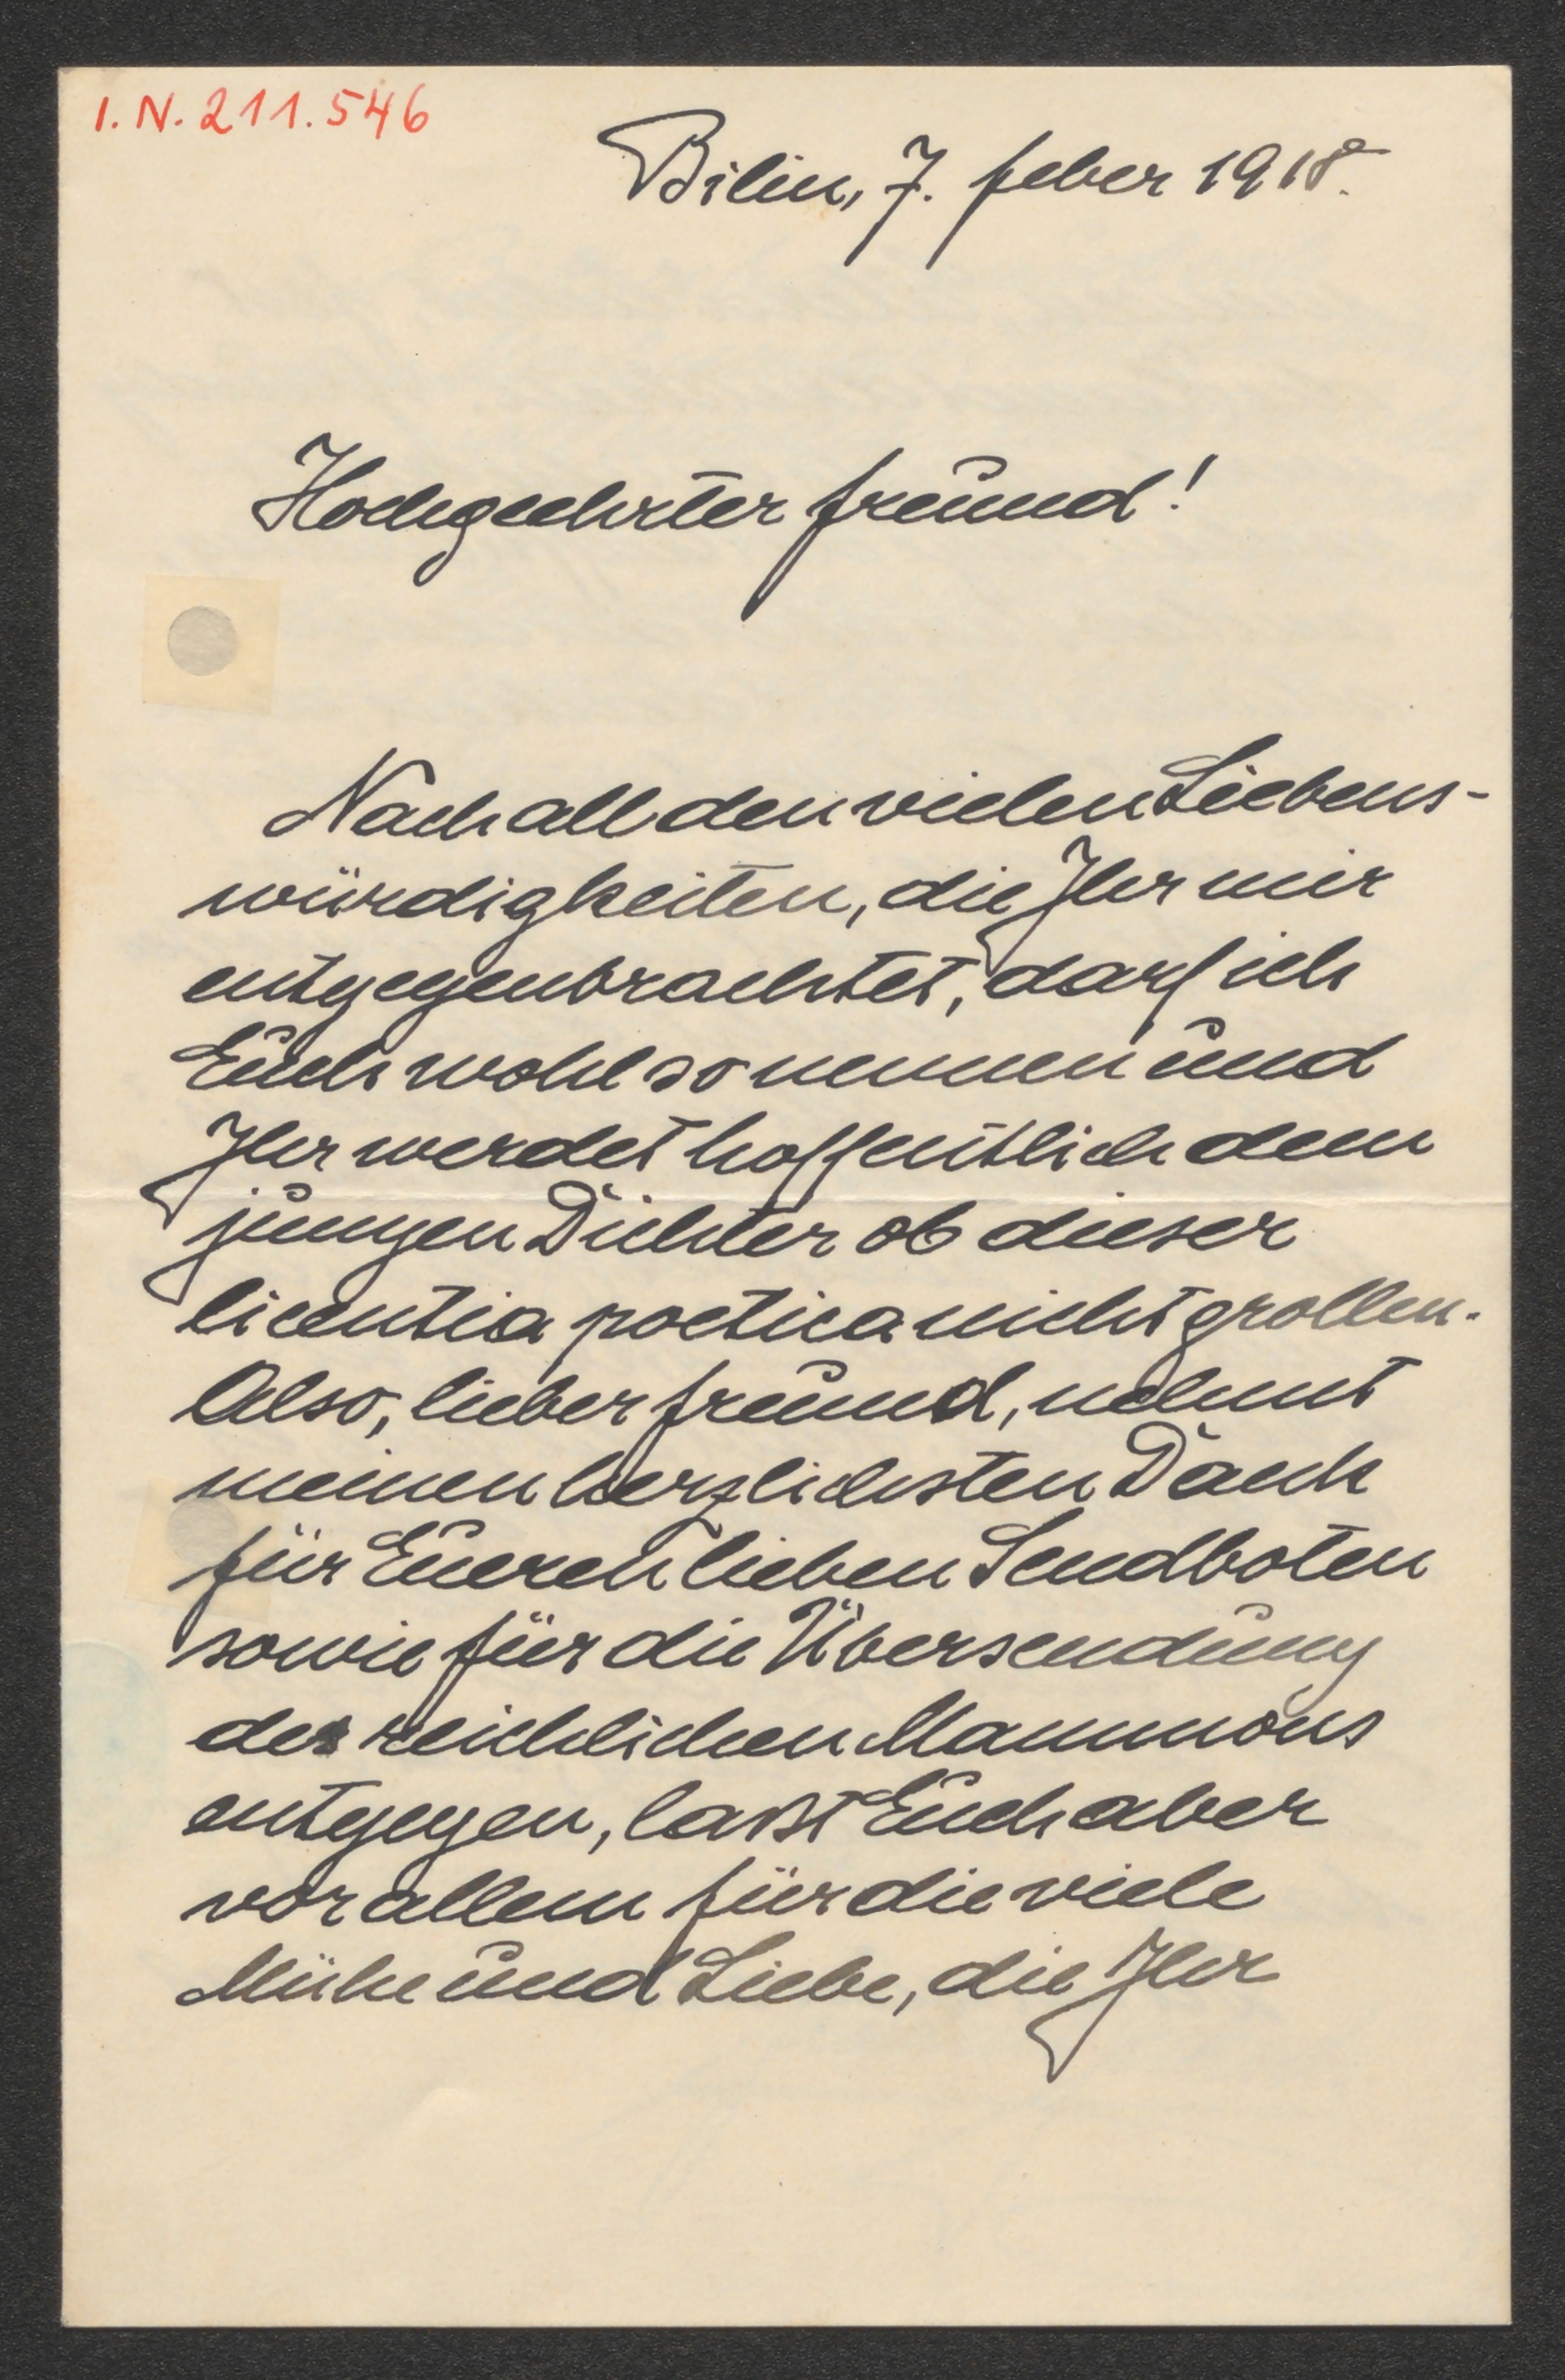 I.N. 211.546
Bilin, 7. feber 1918.
Hochgeehrter Freund!
Nach all den vielen Liebens-
würdigkeiten, die Ihr mir
entgegenbrachtet, darf ich
Euch wohl so nennen und
Ihr werdet hoffentlich dem
jungen Dichter ob dieser
licentia poetica nicht grollen.
Also, lieber Freund, nehmt
meinen herzlichsten Dank
für Eueren lieben Sendboten
sowie für die Übersendung
des reichlichen Mammons
entgegen, laßt Euch aber
vor allem für die viele
Mühe und Liebe, die Ihr